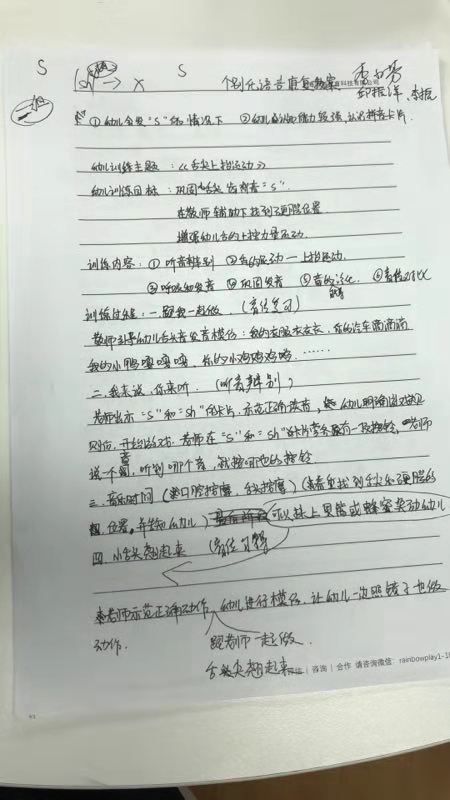 S sh → x S 个别化语言康复教案
邱振洋、李振
① 幼儿会发“s”的情况下 ② 幼儿认知能力较强,认识拼音卡片.
幼儿训练主题:《舌尖上抬运动》
幼儿训练目标:巩固舌尖齿背音“s”.
在教师辅助下找到硬腭位置.
增强幼儿舌的上控力量运动.
训练内容:① 听音辨别 ② 舌的运动—上抬运动.
③ 呼吸和发声 ④ 巩固发音 ⑤ 音的泛化 ⑥ 音位对比
训练过程:一. 跟我一起做.(音位复习)
教师引导幼儿舌尖音发音模仿:我的衣服衣衣衣,你的汽车滴滴滴
我的小鸭嘎嘎嘎,你的小鸡鸡鸡鸡……
二. 我来说,你来听.(听音辨别)
老师出示“s”和“sh”的卡片,示范正确读音,幼儿明确游戏
规则后,开始游戏. 老师在“s”和“sh”的卡片旁各放有一按铃,老师
说一个音,听到哪个音,就按哪边的按铃
三. 音乐时间(口腔按摩,舌头按摩)(找到舌尖和硬腭的
位置,并告知幼儿)可以抹上果酱或蜂蜜来帮幼儿
四. 小舌头翘起来(音位习得)
老师示范正确动作,幼儿进行模仿,让幼儿一次照镜子也做
动作.
跟老师一起做.
舌头尖翘起来
| 咨询 | 合作 请咨询微信:rainbowplay1-1